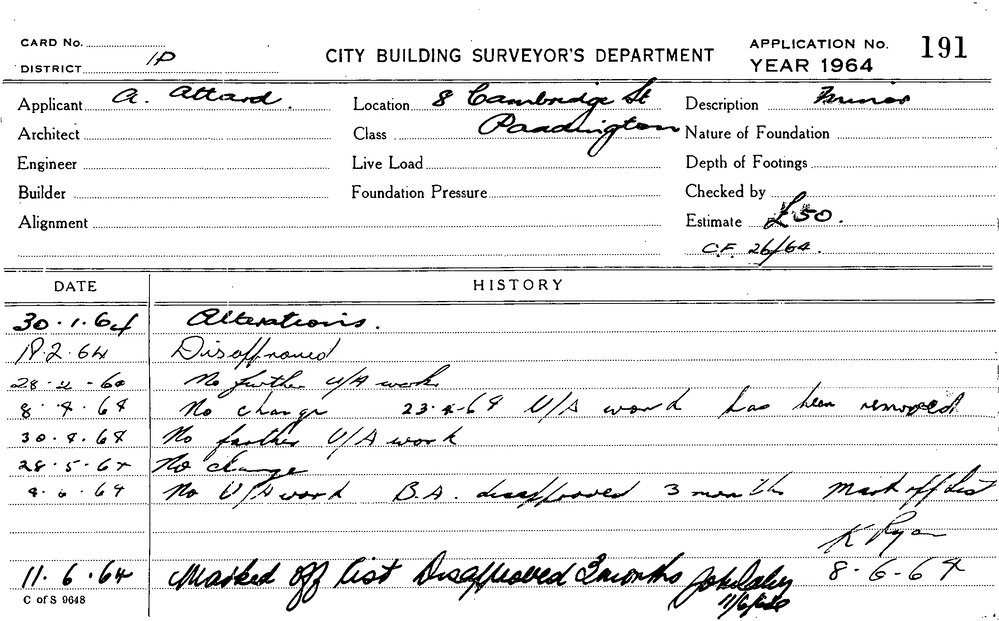 CARD No.
DISTRICT 1P
CITY BUILDING SURVEYOR'S DEPARTMENT
APPLICATION No. 191
YEAR 1964
Applicant A. Attard. Location 8 Cambridge St Description Minor
Architect Class Paddington Nature of Foundation
Engineer Live Load Depth of Footings
Builder Foundation Pressure Checked by
Alignment Estimate £50.
C.F. 26/64.
DATE HISTORY
30.1.64 Alterations.
18.2.64 Disapproved
No further U/A work
8.4.64 No change 23-4-64 U/A work has been removed
30.4.64 No further U/A work
28.5.64 No change
4.6.64 No U/A work B.A. disapproved 3 months Mark off list
K Ryan
8.6.64
11.6.64 Marked off list Disapproved 3 months
11/6/64
C of S 9648